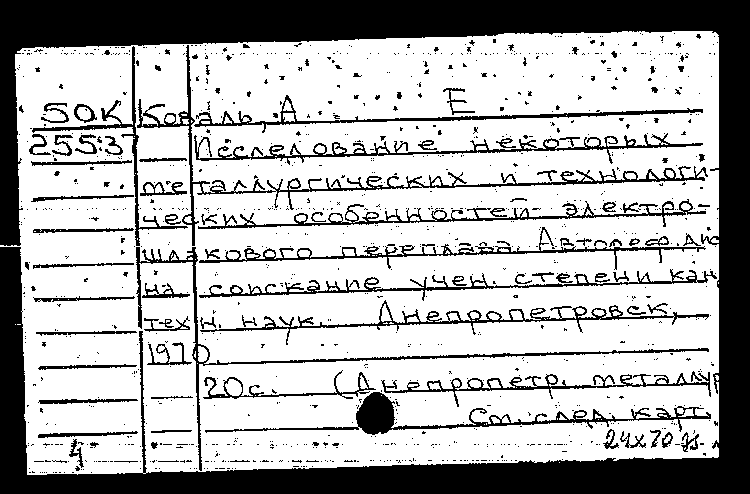 50К Коваль, А. Е
255:37 Исследование некоторых
металлургических и технологи-
ческих особенностей электро-
шлакового переплава. Автореф. дис
на соискание учен. степени кан
техн. наук. Днепропетровск,
1970.
20с. (Днепропетр. металлур
См. след. карт.
4